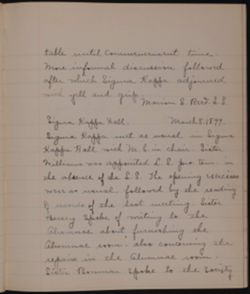 table until Commencement time.
More informal discussion followed
after which Sigma Kappa adjourned
with yell and grip.
Sigma Kappa Hall. March 8, 1899.
Sigma Kappa met as usual in Sigma
Kappa Hall with M. E. in chair. Sister
Williams was appointed L. S. pro. tem. in
the absence of the L. S. The opening exercises
were as usual, followed by the reading
of records of the last meeting. Sister
spoke of writing to the
Alumnae about furnishing the
Alumnae room; also concerning the
repairs in the Alumnae room.
Sister Bowman spoke to the Society